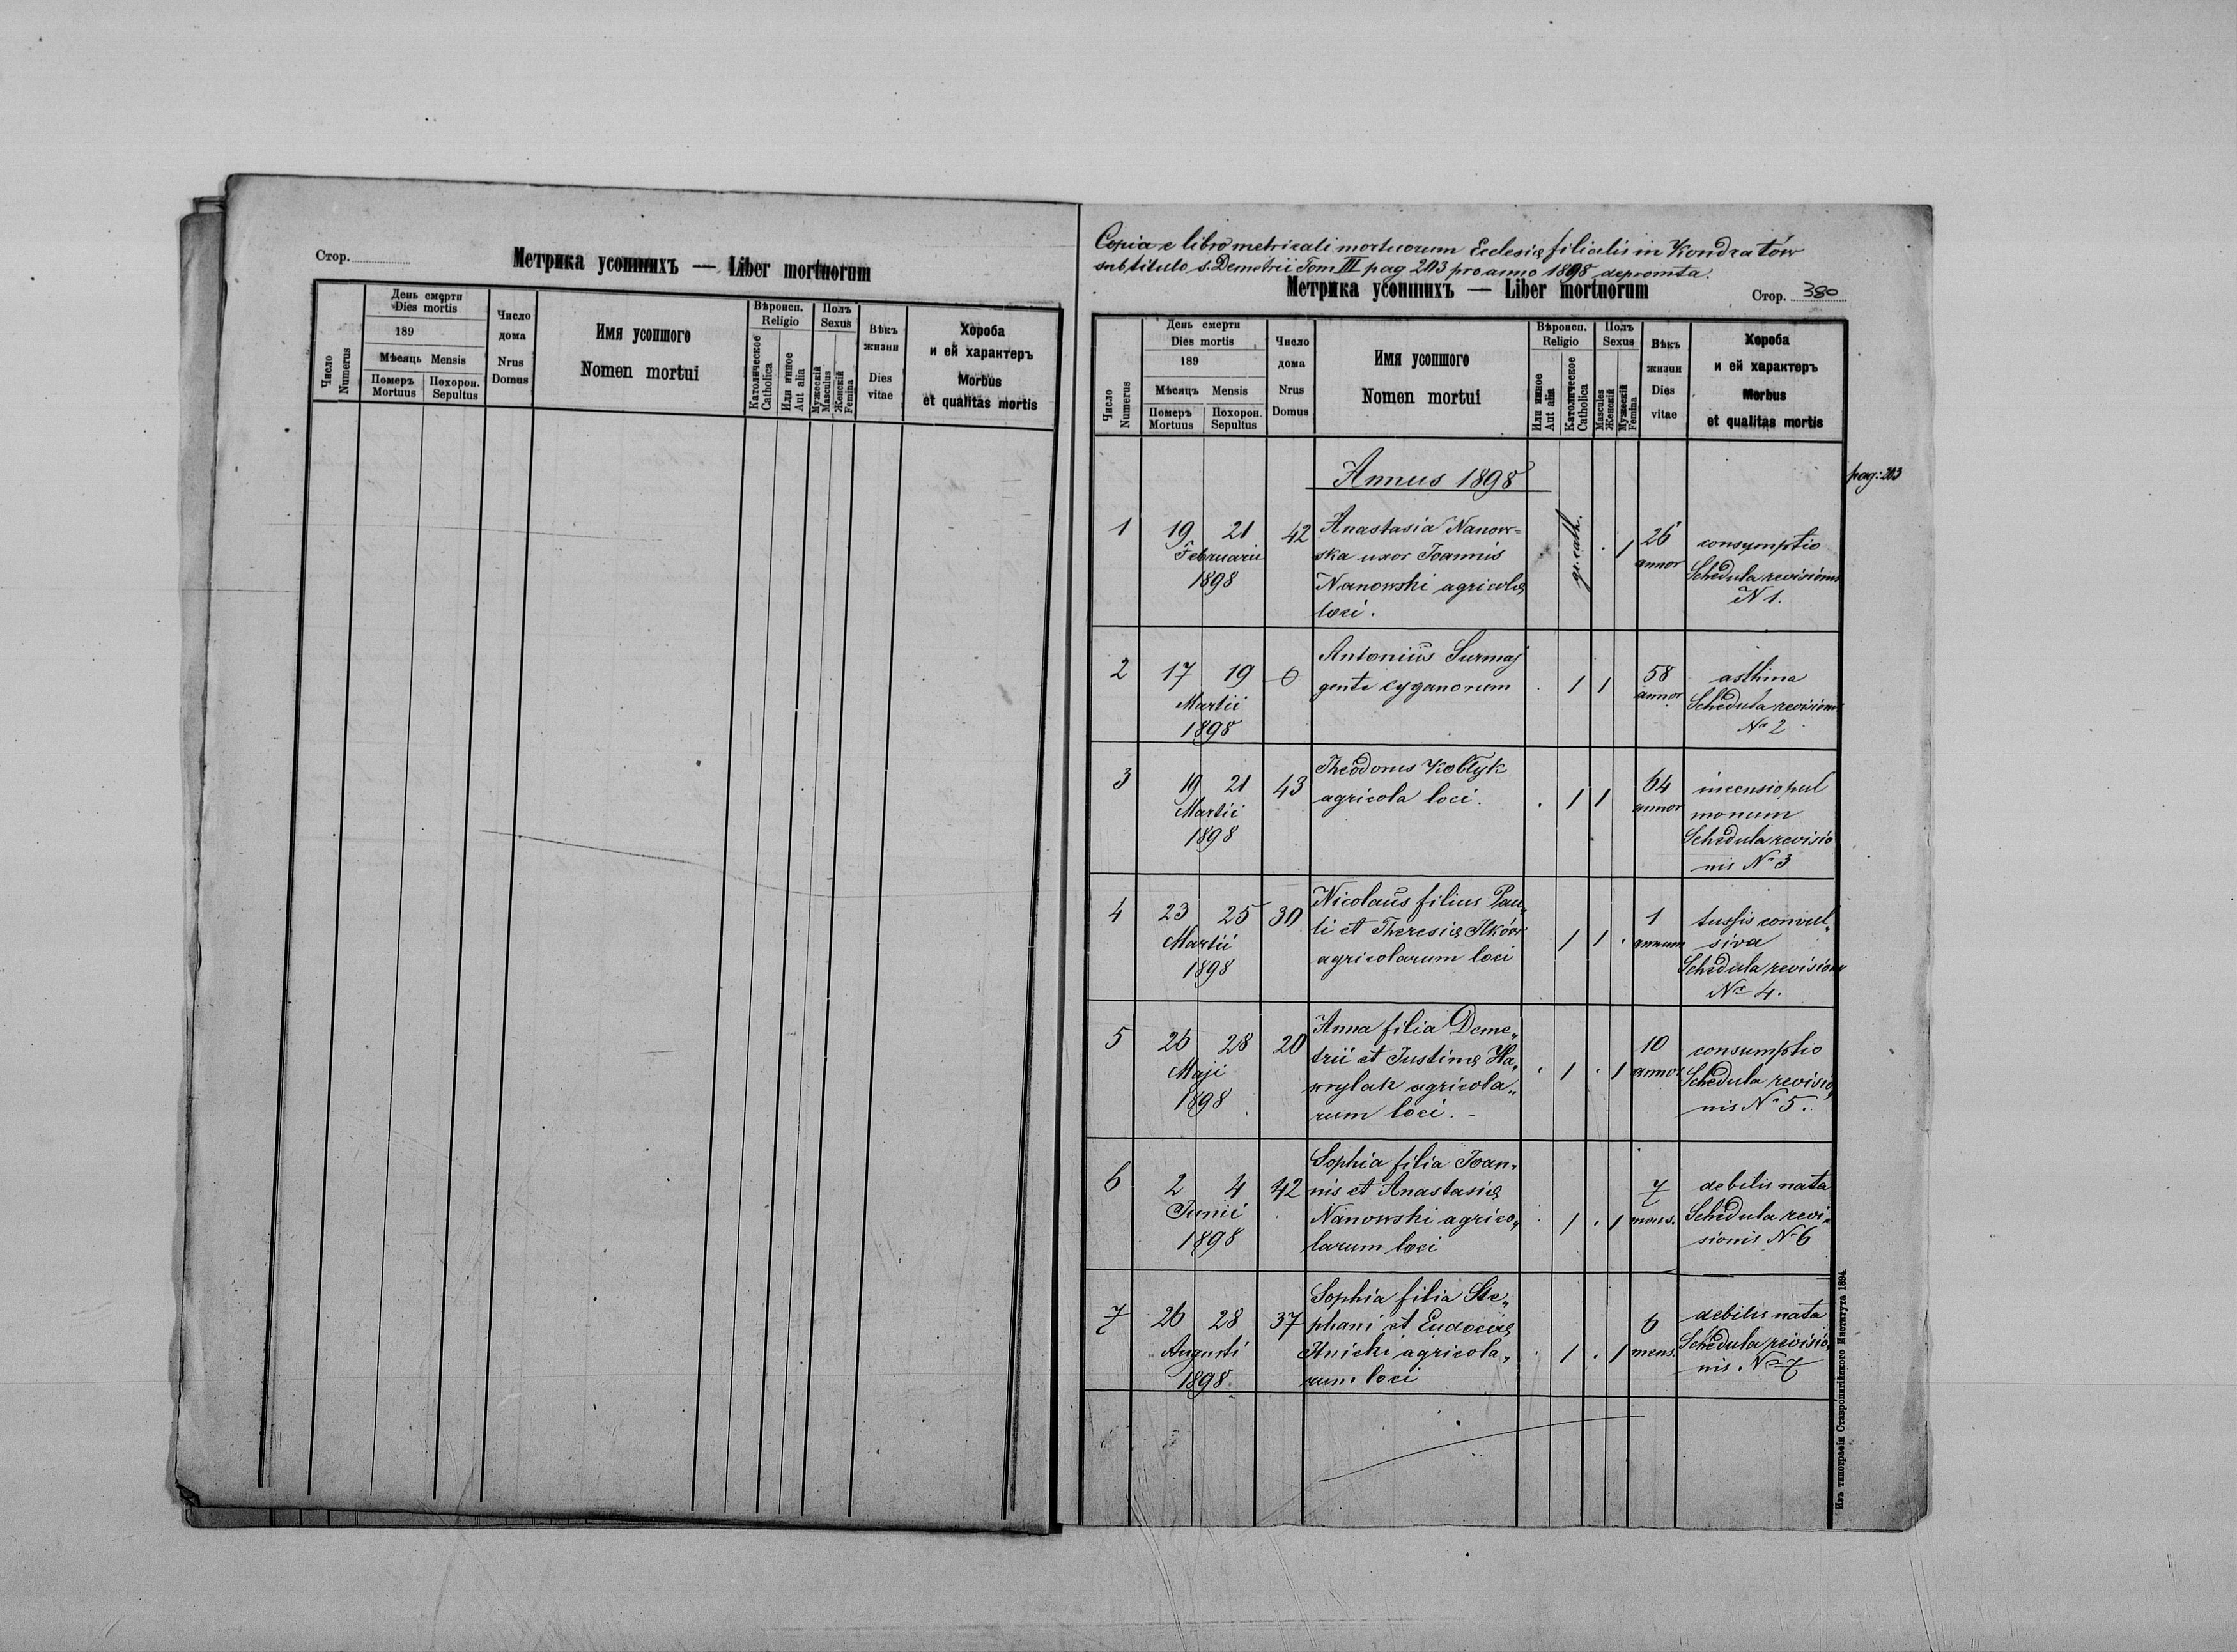 Стор.
Метрика усопшихъ — Liber mortuorum
Число
Numerus
День смерти
Dies mortis
189
Мѣсяць Mensis
Померъ
Mortuus
Похорон.
Sepultus
Число
дома
Nrus
Domus
Имя усопшого
Nomen mortui
Вѣроисп.
Religio
Католическое
Catholica
Или инное
Aut alia
Полъ
Sexus
Мужескій
Masculus
Женскій
Femina
Вѣкъ
жизни
Dies
vitae
Хороба
и ей характеръ
Morbus
et qualitas mortis
Copia e libro metricali mortuorum Eclesię filialis in Kondratów
sub titulo s. Demetrii Tom III pag 203 pro anno 1898 depromta.
Метрика усопшихъ — Liber mortuorum
Стор. 380
Число
Numerus
День смерти
Dies mortis
189
Мѣсяцъ Mensis
Померъ
Mortuus
Похорон.
Sepultus
Число
дома
Nrus
Domus
Имя усопшого
Nomen mortui
Вѣроисп.
Religio
Или инное
Aut alia
Католическое
Catholica
Полъ
Sexus
Mascules
Женскій
Мужескій
Femina
Вѣкъ
жизни
Dies
vitae
Хороба
и ей характеръ
Morbus
et qualitas mortis
Annus 1898
pag: 203
1 19 21 42 Anastasia Nanow=
Februarii ska uxor Joannis
1898 Nanowski agricolę
loci.
gr. cath. . 1 26
annor
consymptio
Schedula revisionis
N 1.
2 17 19 0 Antonius Surmaj
gente cyganorum
Martii
1898
. 1 1 58
annor
asthma
Schedula revisionis
No 2
3 19 21 43 Theodorus Kobłyk
agricola loci.
Martii
1898
. 1 1 64
annor
incensio pul
monum
Schedula revisio
nis No 3
4 23 25 30 Nicolaus filius Pau„
li et Theresię Ilków
agricolarum loci
Martii
1898
1 1 . 1
annum
tussis convul„
siva
Schedula revisionis
No 4.
5 26 28 20 Anna filia Deme„
trii et Justinę Ha„
wrylak agricola„
rum loci. -
Maji
1898
. 1 . 1 10
annor
consumptio
Schedula revisio„
nis No 5.
6 2 4 42 Sophia filia Joan„
nis et Anastasię
Nanowski agrico„
larum loci
Junii
1898
. 1 . 1 7
mens.
debilis nata
Schedula revi„
sionis No 6
7 26 28 37 Sophia filia Ste„
phani et Eudocię
Ilnicki agricola„
rum loci
Augusti
1898
. 1 . 1 6
mens.
debilis nata
Schedula revisio„
nis. No 7
Изъ типографіи Ставропигійского Института 1894.